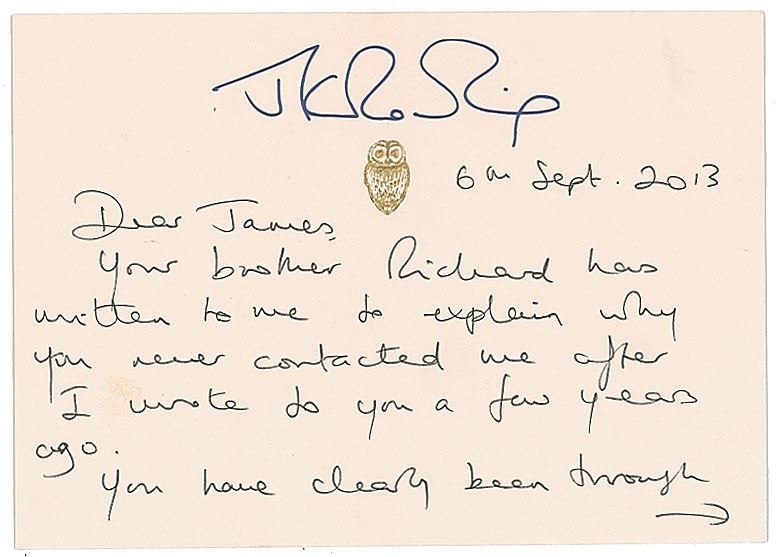 JKRowling
6th Sept. 2013
Dear James,
Your brother Richard has
written to me to explain why
you never contacted me after
I wrote to you a few years
ago.
You have clearly been through
→